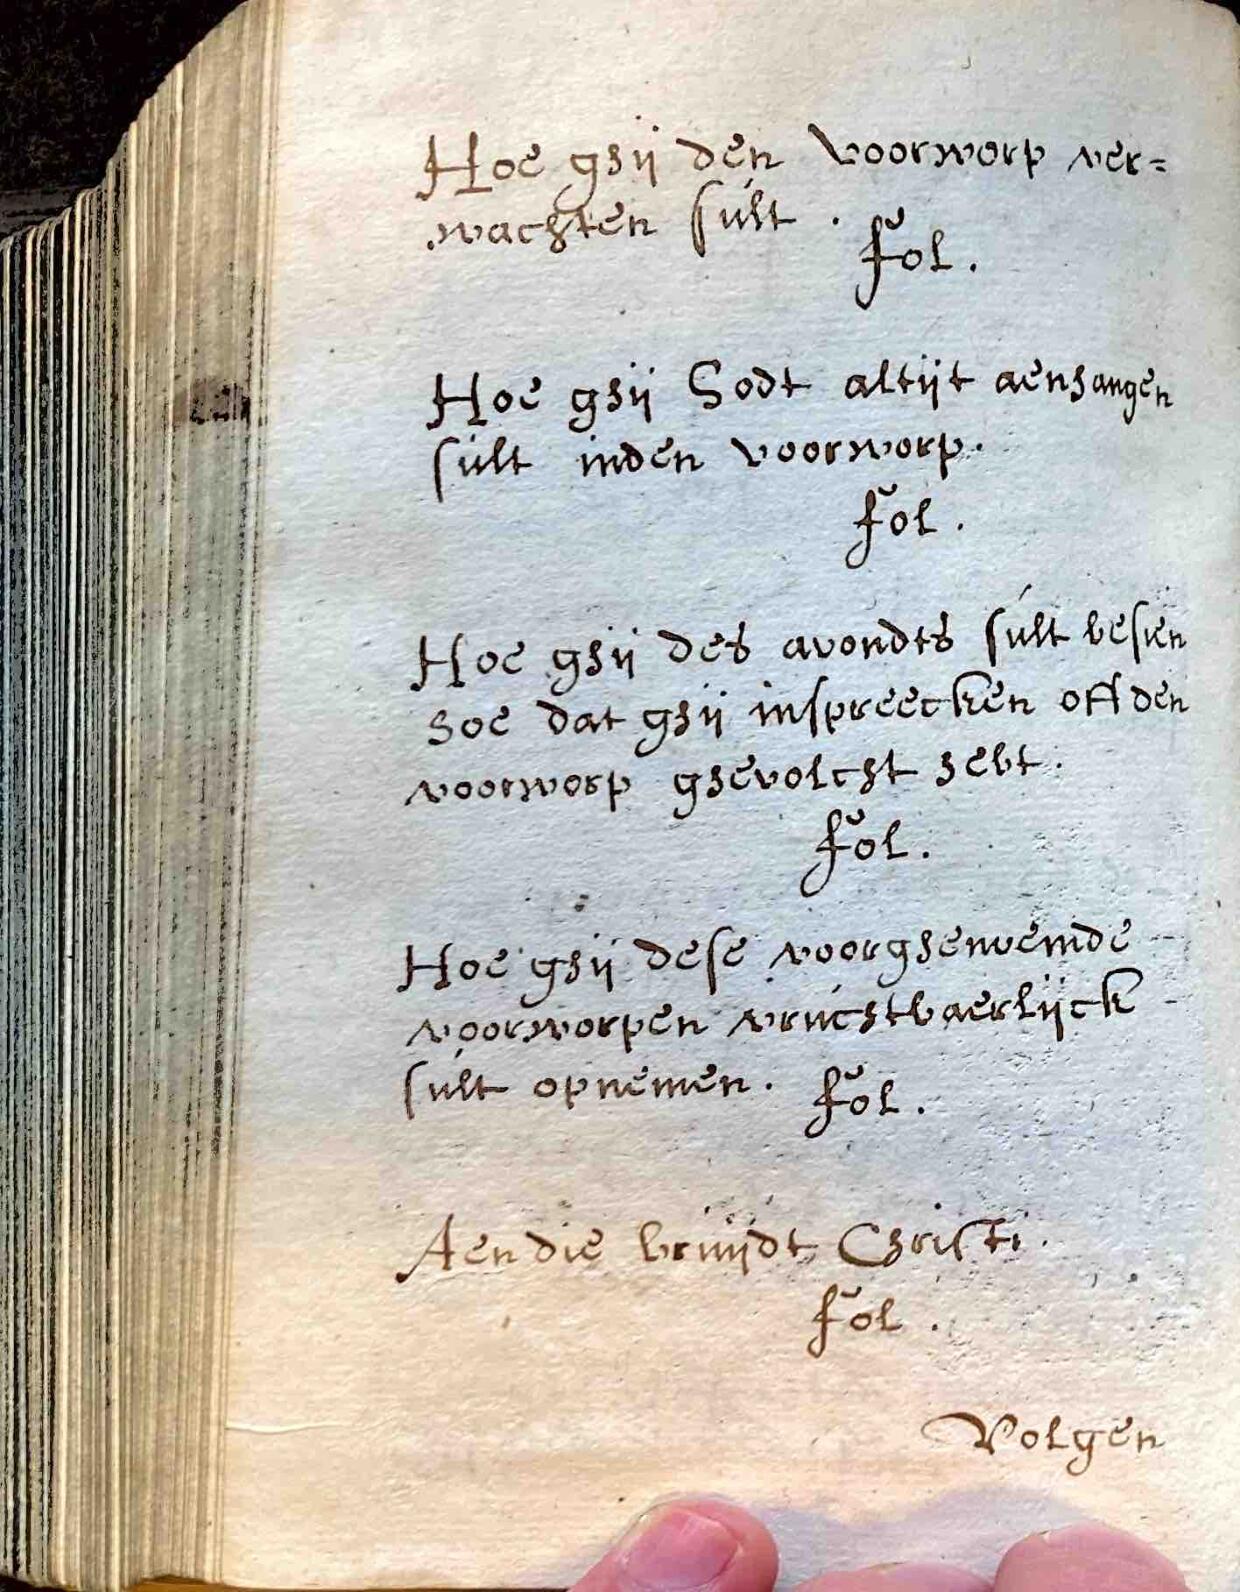 Hoe ghij den voorworp ver=
wachten sult.
Fol.
Hoe ghij Godt altijt aenhangen
sult inden voorworp.
Fol.
Hoe ghij des avondts sult besien
hoe dat ghij inspreecken off den
voorworp ghevolcht hebt.
Fol.
Hoe ghij dese voorghenoemde
voorworpen vruchtbaerlijck
sult opnemen. Fol.
Aen die bruijdt Christi.
Fol.
Volgen